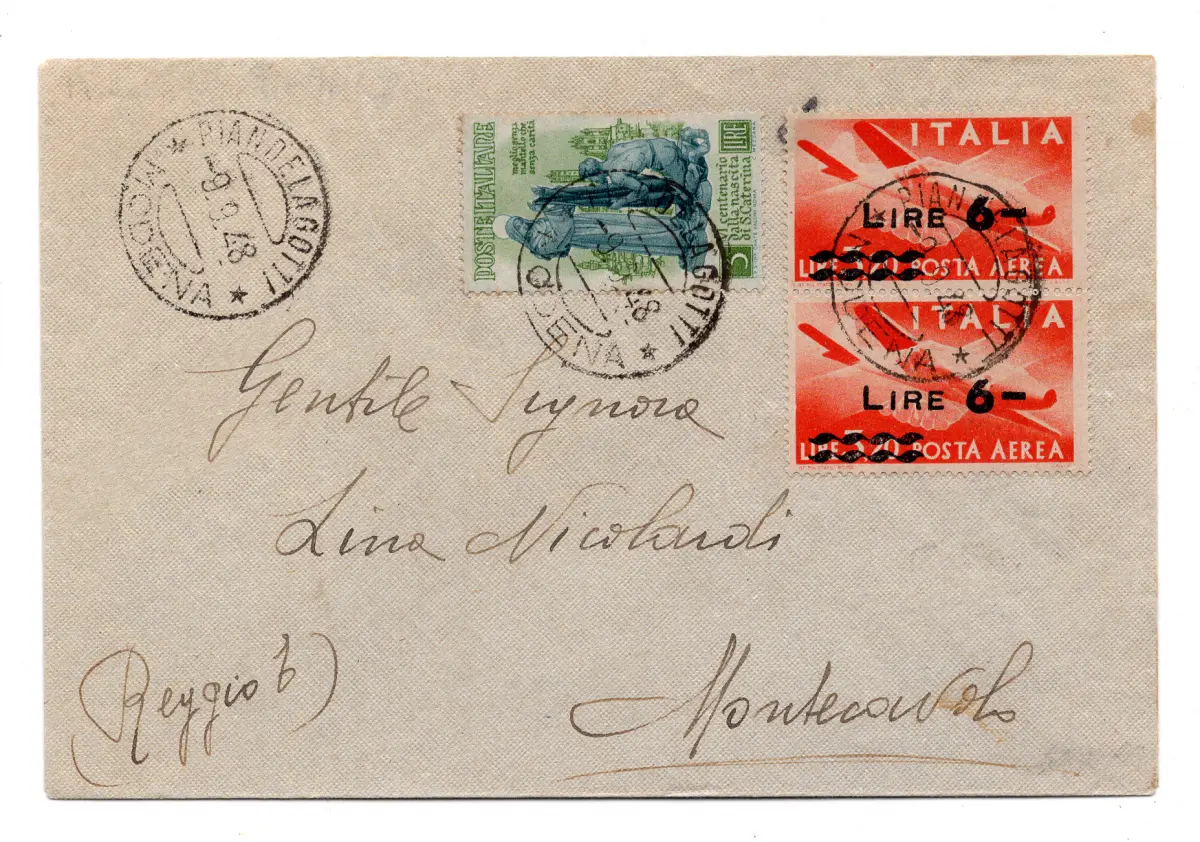 * PIANDELAGOTTI *
MODENA
-9.9.48.
POSTE ITALIANE
meglio senza
mantello che
senza carità
VI centenario
della nascita
di S.Caterina
5 LIRE
ITALIA
LIRE 6-
LIRE 3,20 POSTA AEREA
ITALIA
LIRE 6-
LIRE 3,20 POSTA AEREA
Gentile Signora
Lina Nicolardi
(Reggio E)
Montecavolo